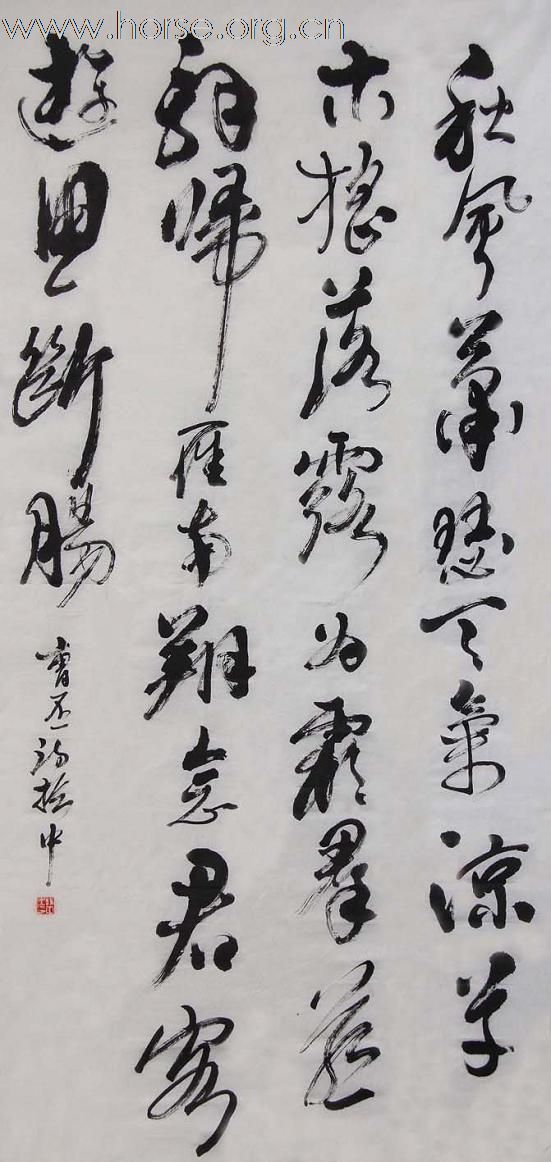 www.horse.org.cn
秋風蕭瑟天氣涼草
木搖落露為霜羣燕
辭歸雁南翔念君客
遊思斷腸
曹丕詩 中